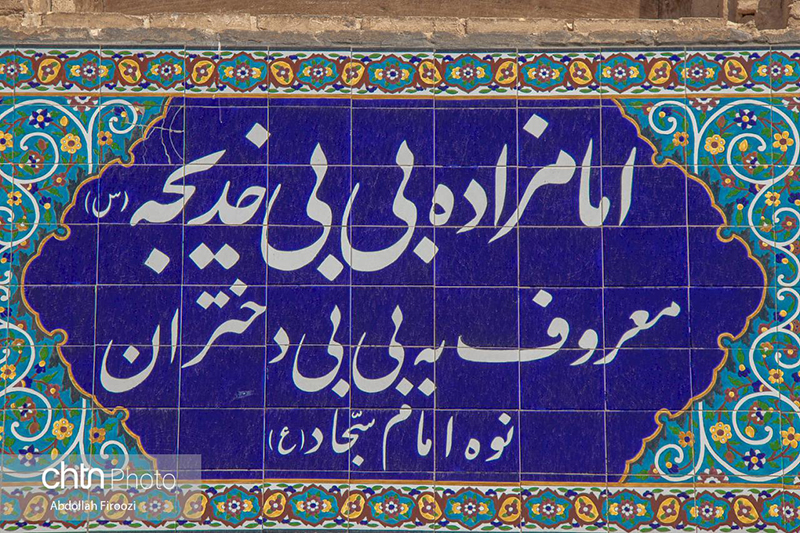 امامزاده بی بی خدیجه (س)
معروف به بی بی دختران
نوه امام سجّاد (ع)
chtn Photo
Abdollah Firoozi